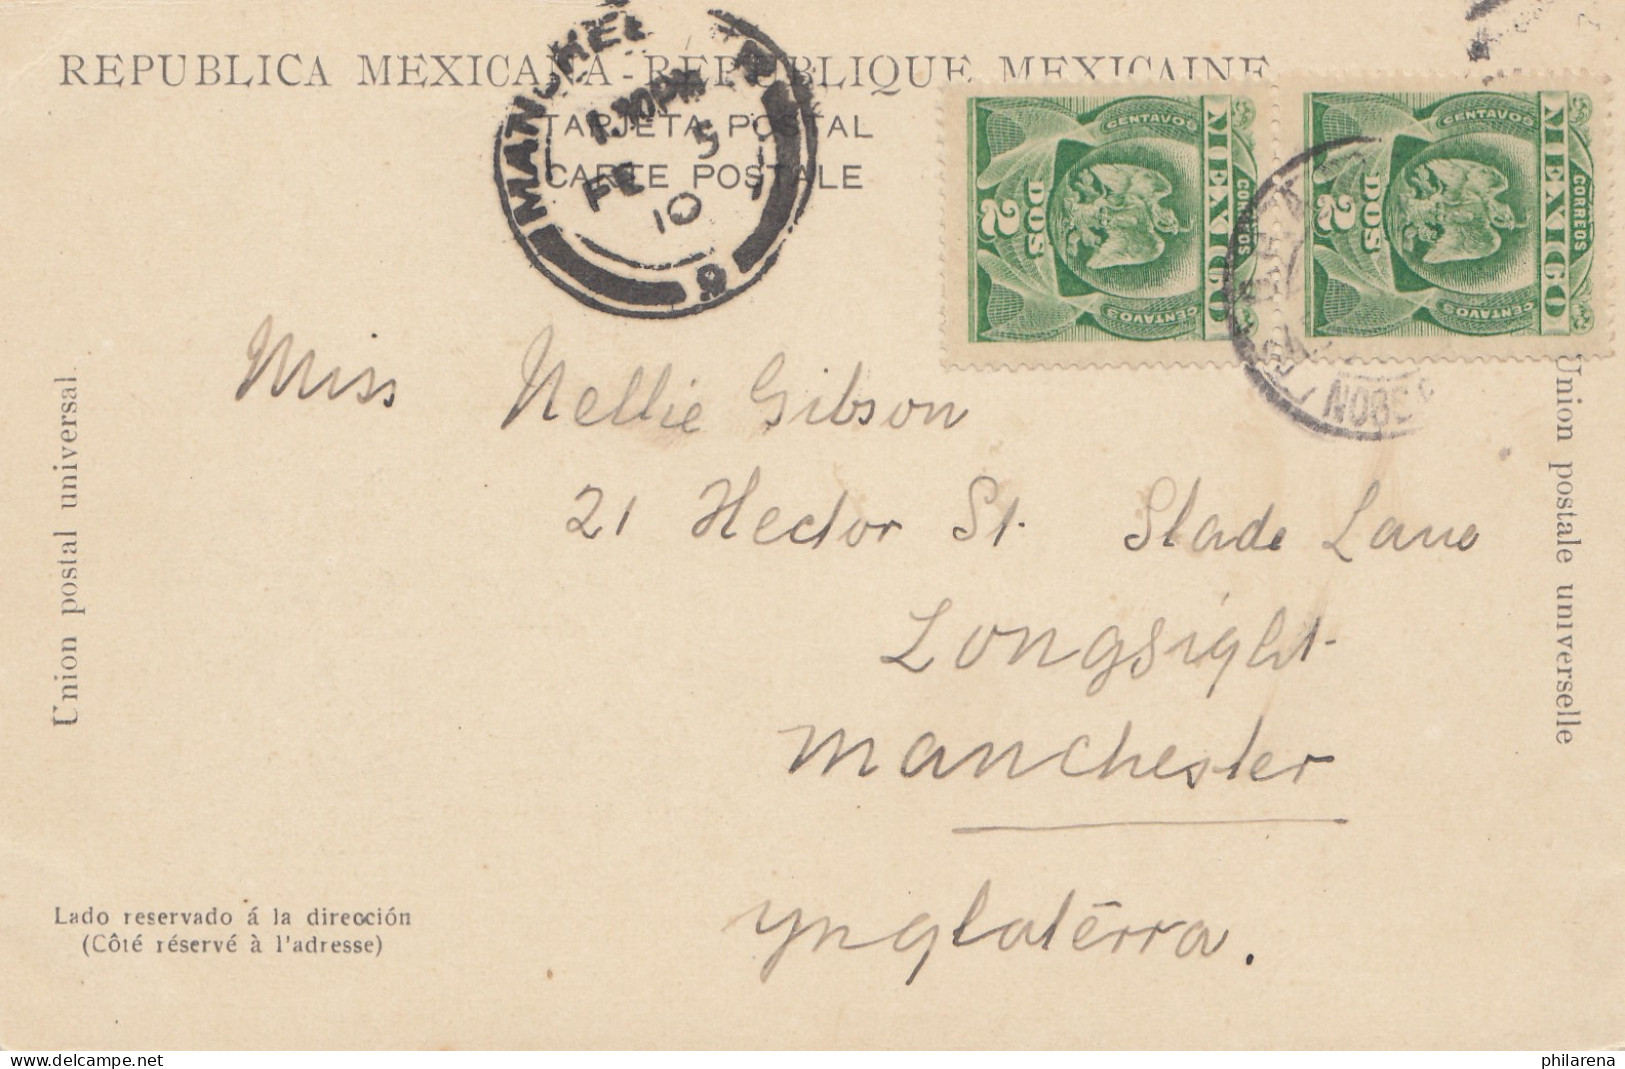 REPUBLICA MEXICANA - REPUBLIQUE MEXICAINE
TARJETA POSTAL
CARTE POSTALE
MANCHESTER
1.30PM
FE 5
10
9
MEXICO
CORREOS
CENTAVOS
DOS
2
CENTAVOS
MEXICO
CORREOS
CENTAVOS
DOS
2
CENTAVOS
Miss Nellie Gibson
21 Hector St. Slade Lane
Longsight
Manchester
Ynglatérra.
Union postal universal
Union postale universelle
Lado reservado á la dirección
(Côté réservé à l'adresse)
https://www.delcampe.net
philarena